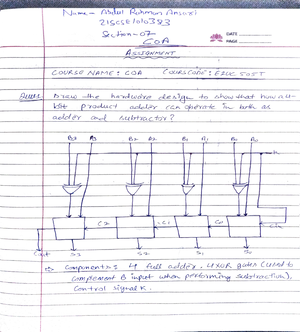 Name - Abdul Rahman Ansari
21SCSE1010383
Section-07
COA
DATE
PAGE
ASSIGNMENT
COURSE NAME: COA COURSE CODE: E2UC505T
Draw the hardware design to show that how a 4-
bit product adder can operate in both as
adder and subtractor?
B3 A3 B2 A2 B1 A1 B0 A0
K
C2 C1 C0 Cin
Cout S3 S2 S1 S0
Components: 4 full adder, 4 XOR gates (used to
complement B input when performing subtraction),
Control signal K.